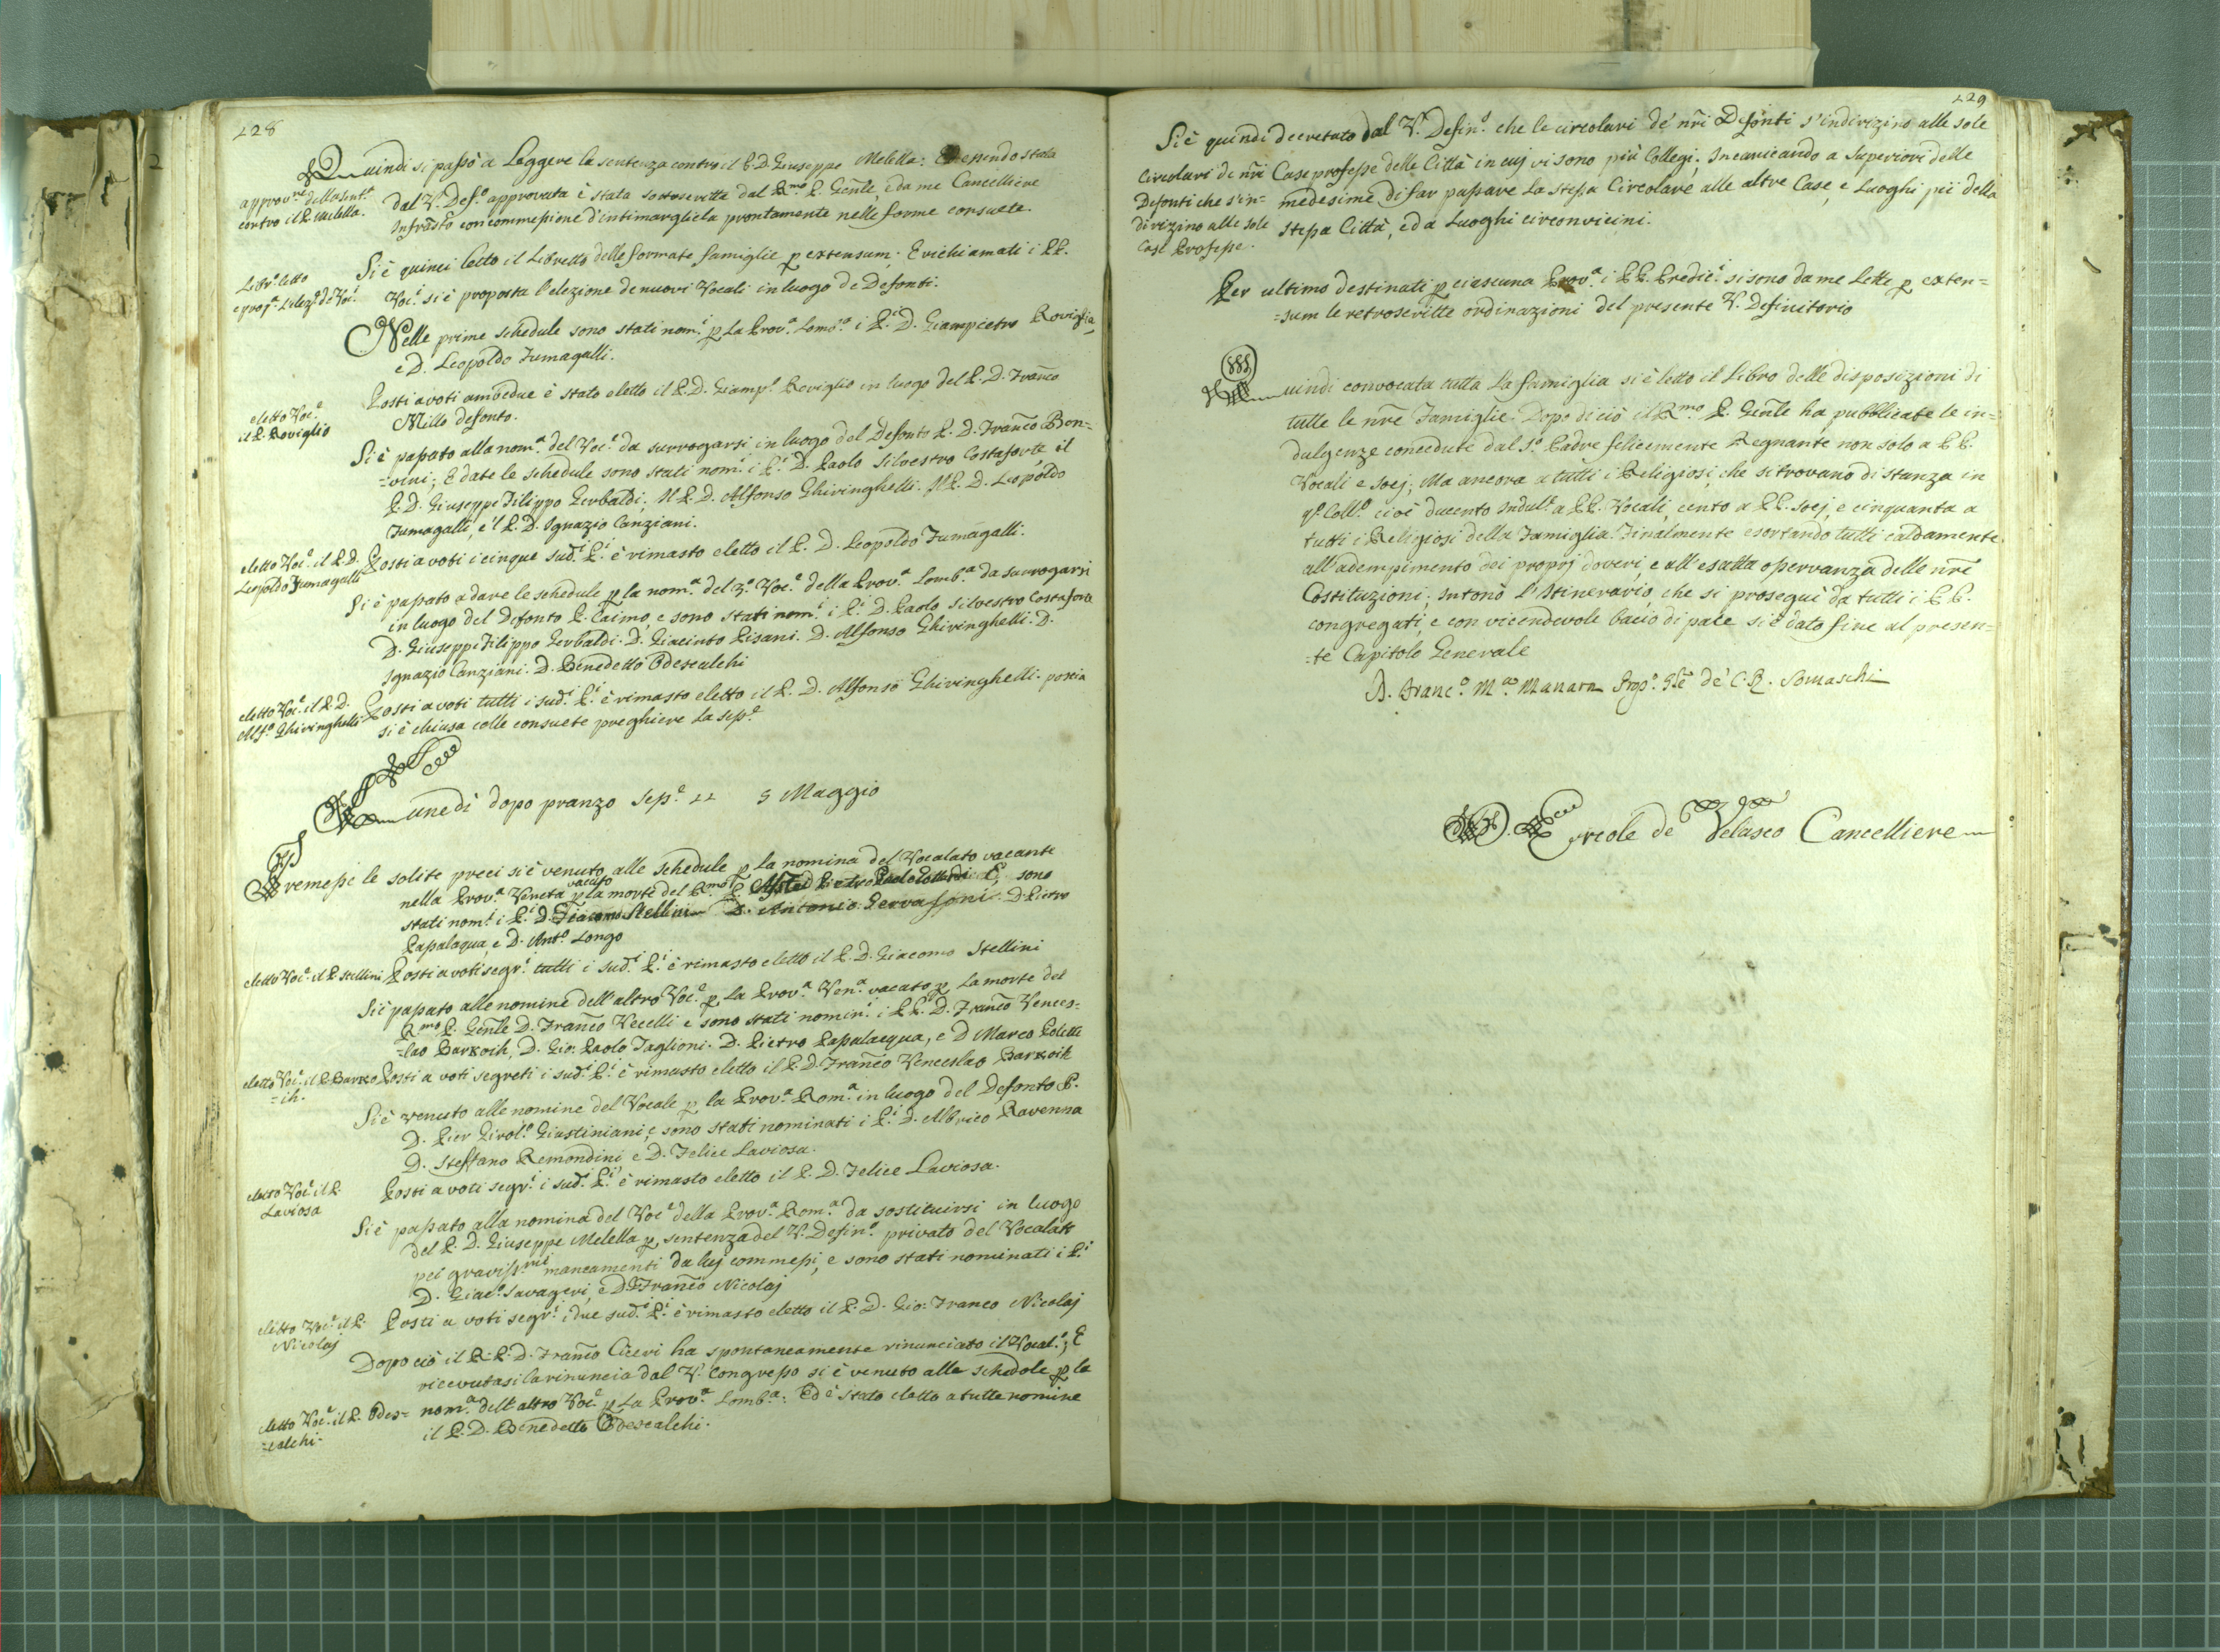 228
Quindi si passò a Leggere la sentenza contro il P. D. Giuseppe Melella: Ed essendo stata
approv.ne della Sent.a
contro il P. Melella.
dal V. Def.o approvata è stata sottoscritta dal R.mo P. Gen̄le, e da me Cancelliere
Infrad̄tto con commessione d'intimargliela prontamente nelle forme consuete.
Libr.o letto
e prop.a l'elez.e de Voc.i
Si è quinci letto il Libretto delle formate famiglie p extensum; E richiamati i PP.
Voc.i si è proposta l'elezione de nuovi Vocali in luogo de Defonti.
Nelle prime schedule sono stati nom.i p La Prov.a Lomb.a i P.i D. Giampietro Roviglio,
e D. Leopoldo Fumagalli.
eletto Voc.e
il P. Roviglio
Posti a voti ambedue è stato eletto il P. D. Giamp.o Roviglio in luogo del P. D. Fran̄co
Millo defonto.
Si è passato alla nom.a del Voc.e da surrogarsi in luogo del Defonto P. D. Fran̄co Ben=
=vini; E date le schedule sono stati nom.i i P.i D. Paolo Silvestro Costaforte il
P. D. Giuseppe Filippo Gerbaldi; Il P. D. Alfonso Ghiringhelli. Il P. D. Leopoldo
Fumagalli, e 'l P. D. Ignazio Canziani.
eletto Voc.e il P. D.
Leopoldo Fumagalli
Posti a voti i cinque sud.i P.i è rimasto eletto il P. D. Leopoldo Fumagalli.
Si è passato a dare le schedule p la nom.a del 3.o Voc.e della Prov.a Lomb.a da surrogarsi
in luogo del Defonto P. Caimo, e sono stati nom.i i P.i D. Paolo Silvestro Costaforte
D. Giuseppe Filippo Gerbaldi. D. Giacinto Pisani. D. Alfonso Ghiringhelli. D.
Ignazio Canziani. D. Benedetto Odescalchi
eletto Voc.e il P. D.
Alf.o Ghiringhelli
Posti a voti tutti i sud.i P.i è rimasto eletto il P. D. Alfonso Ghiringhelli. poscia
si è chiusa colle consuete preghiere la sess.e
Lunedì dopo pranzo Sess.e 22 3 Maggio
Premesse le solite preci si è venuto alle schedule p la nomina del Vocalato vacante
nella Prov.a Veneta vacato p la morte del R.mo P. sono
stati nom.i i P.i D. Giacomo Stellini D. Antonio Gervasoni. D. Pietro
Passalaqua, e D. Ant.o Longo
eletto Voc.e il P. Stellini
Posti a voti segr.i tutti i sud.i P.i è rimasto eletto il P. D. Giacomo Stellini
Si è passato alle nomine dell'altro Voc.e p La Prov.a Ven.a vacato p La morte del
R.mo P. Gen̄le D. Fran̄co Vecelli e sono stati nomin.i i PP. D. Fran̄co Vences=
=lao Barkoik, D. Gio: Paolo Taglioni. D. Pietro Passalacqua, e D Marco Poletti
eletto Voc.e il P. Barko
=ik.
Posti a voti segreti i sud.i P.i è rimasto eletto il P. D. Fran̄co Venceslao Barkoik
Si è venuto alle nomine del Vocale p la Prov.a Rom.a in luogo del Defonto P.
D. Pier Girol.o Giustiniani, e sono stati nominati i P.i D. Albrico Ravenna
D. Steffano Remondini e D. Felice Laviosa.
eletto Voc.e il P.
Laviosa
Posti a voti segr.i i sud.i P.i è rimasto eletto il P. D. Felice Laviosa.
Si è passato alla nomina del Voc.e della Prov.a Rom.a da sostituirsi in luogo
del P. D. Giuseppe Melella p sentenza del V. Defin.o privato del Vocalato
pei graviss.mi mancamenti da luj commessi, e sono stati nominati i P.i
D. Giac.o Savageri, e D. Fran̄co Nicolaj
eletto Voc.e il P.
Nicolaj
Posti a voti segr.i i due sud.i P.i è rimasto eletto il P. D. Gio: Franco Nicolaj
Dopo ciò il R. P. D. Fran̄co Ciceri ha spontaneamente rinunciato il Vocal.o; E
ricevutasi la rinuncia dal V. Congresso si è venuto alle schedole p la
eletto Voc.e il P. Odes=
=calchi.
nom.a dell'altro Voc.e p La Prov.a Lomb.a: Ed è stato eletto a tutte nomine
il P. D. Benedetto Odescalchi.
229
Si è quindi decretato dal V. Defin.o che le circolari de' nr̄i Defonti s'indirizino alle sole
Circolari de nr̄i
Defonti che s'in=
dirizino alle sole
Case Professe.
Case professe delle Città in cuj vi sono più Collegj; Incaricando a Superiori delle
medesime di far passare La stessa Circolare alle altre Case, e Luoghi pii della
stessa Città, ed a Luoghi circonvicini.
Per ultimo destinati p ciascuna Prov.a i PP. Predic.i si sono da me Lette p exten=
=sum le retroscritte ordinazioni del presente V. Definitorio
Quindi convocata tutta La famiglia si è letto il Libro delle disposizioni di
tutte le nr̄e Famiglie. Dopo di ciò il R.mo P. Gen̄le ha pubblicate le in=
dulgenze concedute dal S.o Padre felicemente Regnante non solo a PP.
Vocali e Socj; Ma ancora a tutti i Religiosi, che si trovano di stanza in
q.o Coll.o cioè ducento Indul.e a PP. Vocali, cento a PP. Socj, e cinquanta a
tutti i Religiosi della Famiglia. Finalmente esortando tutti caldamente
all'adempimento dei proprj doveri, e all'esatta osservanza delle nr̄e
Costituzioni; Intonò l'Itinerario, che si proseguì da tutti i PP.
congregati, e con vicendevole bacio di pace si è dato fine al presen=
=te Capitolo Generale
D. Franc.o M.a Manara Prep.o G̅le de' C. R. Somaschi
D. Ercole de Velasco Cancelliere